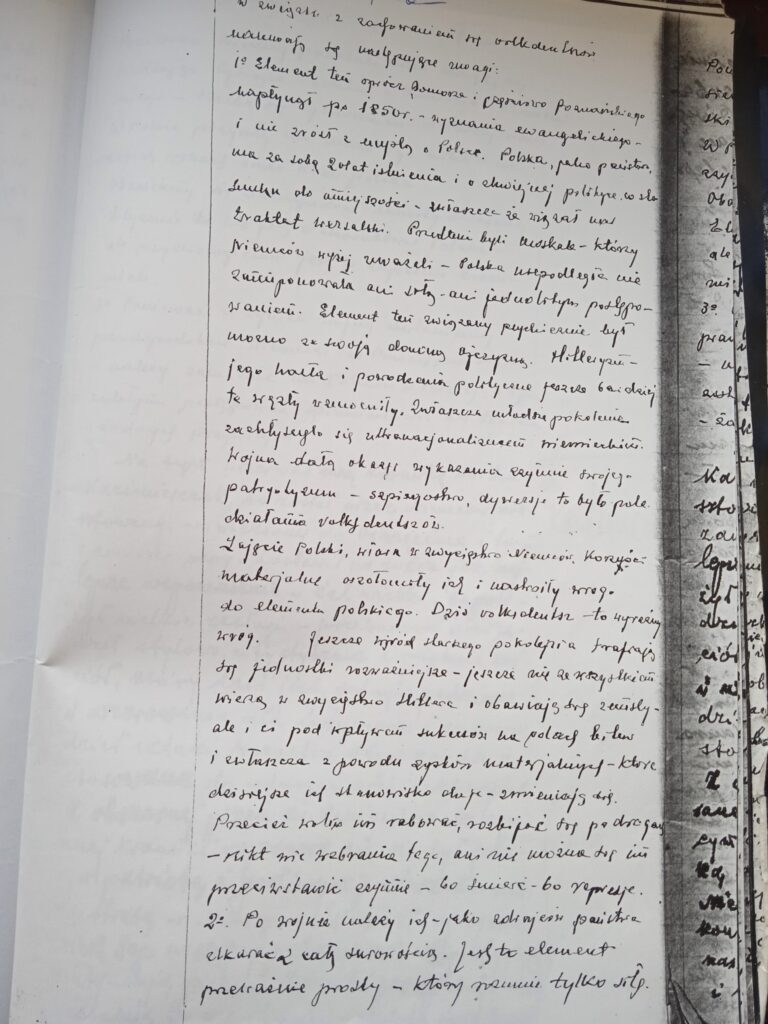 W związku z zachowaniem się volksdeutschów
nasuwają się następujące uwagi:
1º Element ten oprócz Pomorza i częściowo Poznańskiego
napłynął po 1850 r. - wyznania ewangelickiego -
i nie zrósł z myślą o Polsce. Polska, jako państwo,
ma za sobą 20 lat istnienia i o chwiejnej polityce, w sto
sunku do mniejszości - zwłaszcza że wiązał nas
traktat wersalski. Przedtem byli moskale - którzy
Niemców wyżej uważali - Polska niepodległa nie
zaimponowała ani siłą - ani jednolitym postępo-
waniem. Element ten związany psychicznie był
mocno ze swoją dawną ojczyzną. Hitleryzm -
jego hasła i powodzenia polityczne jeszcze bardziej
te węzły wzmocniły. Zwłaszcza młodsze pokolenie
zachłysnęło się ultranacjonalizmem niemieckim.
Wojna dała okazję wykazania czynnie swojego
patryotyzmu - szpiegostwo, dywersje to było pole
działania volksdeutszów.
Zajęcie Polski, wiara w zwycięstwo Niemców, korzyści
materjalne oszołomiły ich i nastroiły wrogo
do elementu polskiego. Dziś volksdeutsz - to wyraźny
wróg. Jeszcze wśród starszego pokolenia trafiają
się jednostki rozważniejsze - jeszcze nie ze wszystkiem
wierzą w zwycięstwo Hitlera i obawiają się zemsty -
ale i ci pod wpływem sukcesów na polach bitew
i zwłaszcza z powodu zysków materjalnych - które
dzisiejsze ich stanowisko daje - zmieniają się.
Przecież wolno im rabować, rozbijać się po drogach
- nikt nie wzbrania tego, ani nie można się im
przeciwstawić czynnie - bo śmierć - bo represje.
2º. Po wojnie należy ich - jako zdrajców państwa
ukarać z całą surowością. Jest to element
przeważnie prosty - który rozumie tylko siłę.